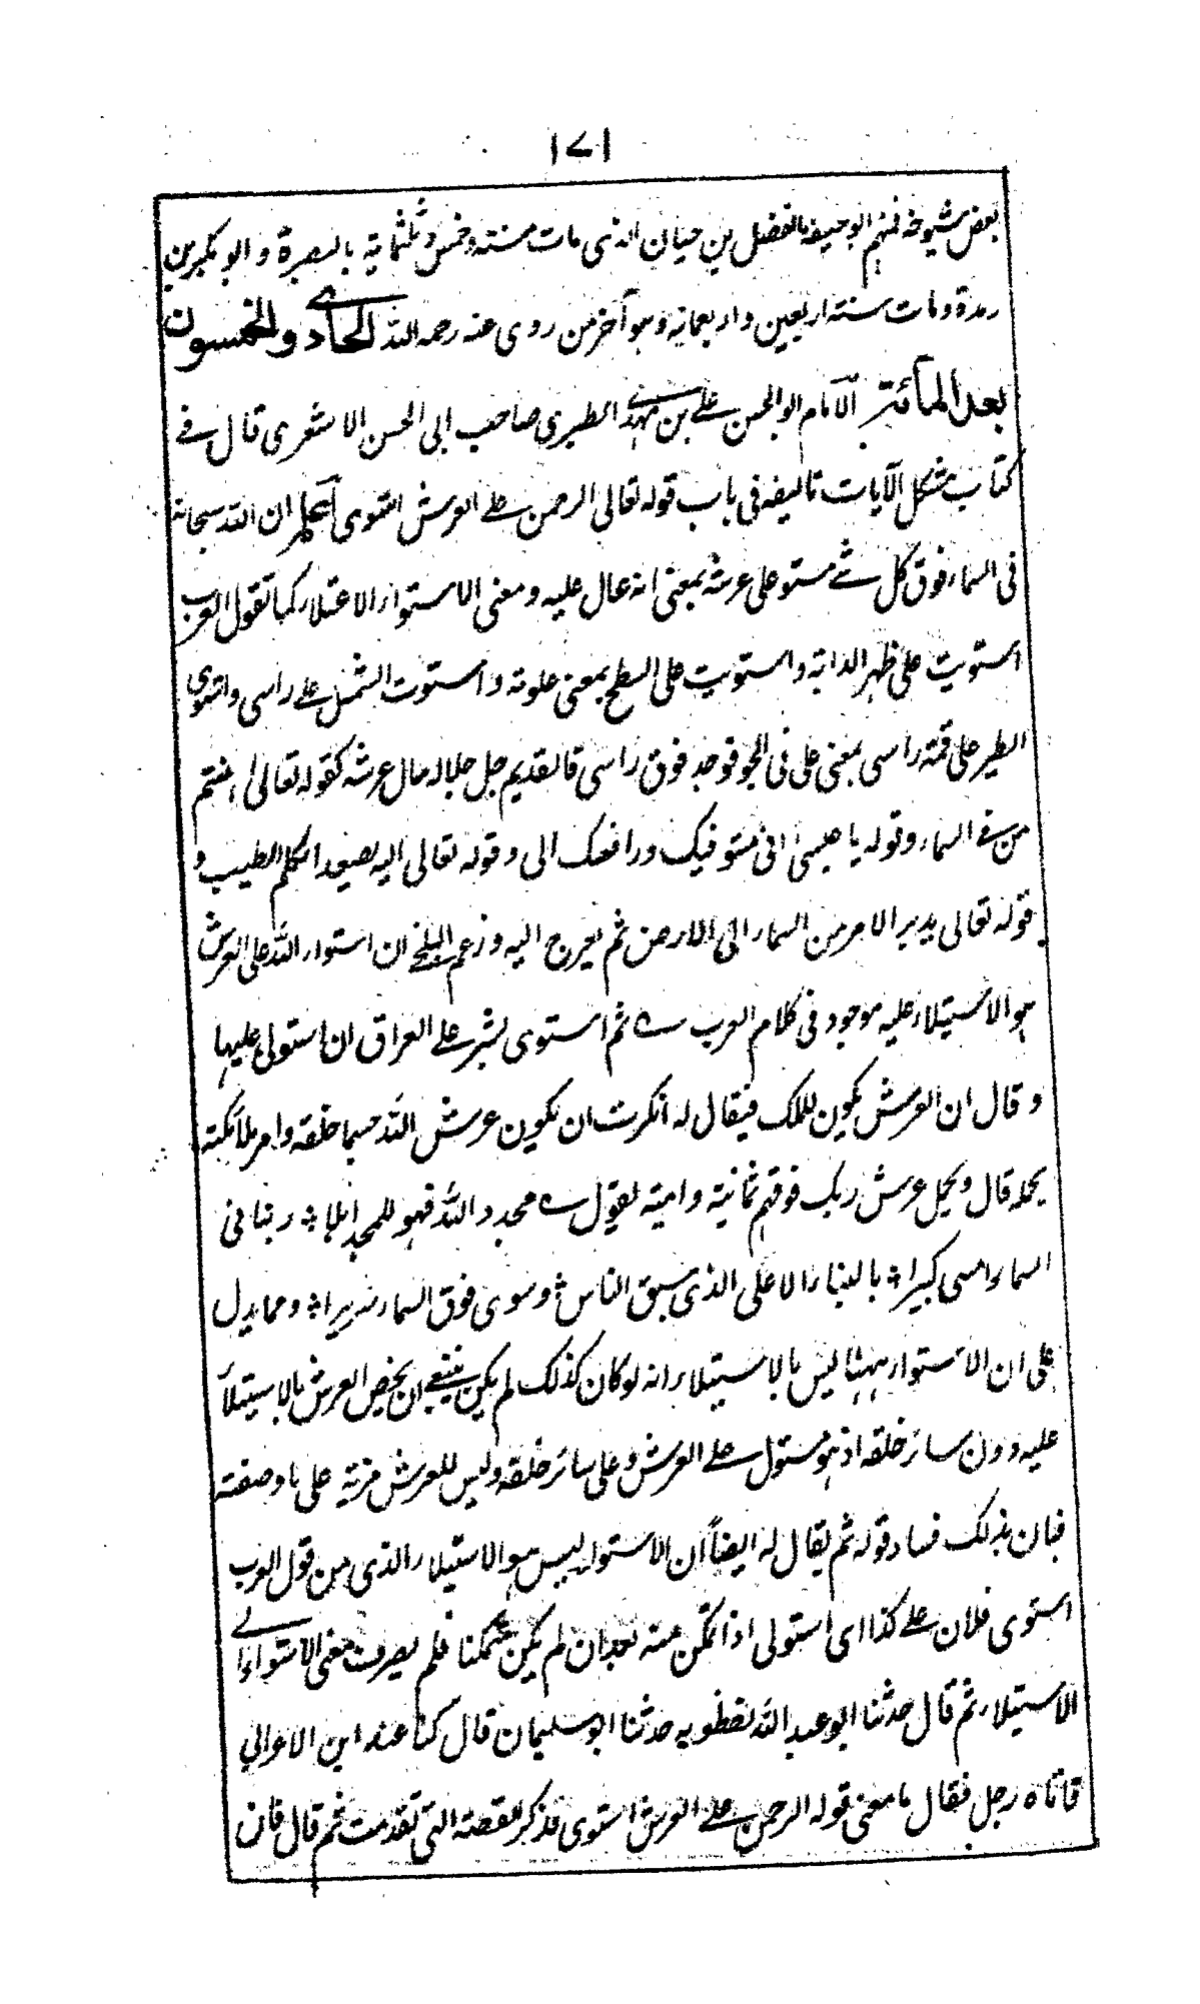 ١٧١
بعض شيوخه فمنهم ابو خليفة الفضل بن حيان الذى مات سنته وخمس وثلثماية بالبصرة و ابو بكر بن
ريدة ومات سنته اربعين واربعمائة وهو آخر من روى عنه رحمه الله الحادى والخمسون
بعد المأئة الآمام ابو الحسن على بن مهدى الطبرى صاحب ابى الحسن الاشعرى قال فى
كتاب مشكل الآيات تاليفه فى باب قوله تعالى الرحمن على العرش استوى آعلم ان الله سبحانه
فى السماء فوق كل شئ مستو على عرشه بمعنى انه عال عليه ومعنى الاستواء الاعتلاء كما تقول العرب
استويت على ظهر الدابة واستويت على السطح بمعنى علوته واستوت الشمس على راسى واستوى
الطير على قمة راسى بمعنى على فى الجو فوجد فوق راسى فالقديم جل جلاله عال عرشه كقوله تعالى ءامنتم
من فى السماء وقوله يا عيسى انى متوفيك ورافعك الى وقوله تعالى اليه يصعد الكلم الطيب و
قوله تعالى يدبر الامر من السماء الى الارض ثم يعرج اليه وزعم البلخى ان استواء الله على العرش
هو الاستيلاء عليه موجود فى كلام العرب ـه ثم استوى بشر على العراق ان استولى عليها
و قال ان العرش يكون للملك فيقال له انكرت ان يكون عرش الله جسما خلقه وامر ملآئكته
بحمله قال ويحمل عرش ربك فوقهم ثمانية وامية يقول ـه مجدد الله فهو للمجد اهل ؛ ربنا فى
السماء امسى كبيرا ؛ بالبناء الاعلى الذى سبق الناس ؛ وسوى فوق السماء سريرا ؛ ومما يدل
على ان الاستواء ههنا ليس بالاستيلاء انه لو كان كذلك لم يكن ينبغى ان يخص العرش بالاستيلآء
عليه دون سائر خلقه اذ هو مستول على العرش وعلى سائر خلقه وليس للعرش مزية على ما وصفته
فبان بذلك فساد قوله ثم يقال له ايضاً ان الاستواء ليس هو الاستيلاء الذى من قول العرب
استوى فلان على كذا اى استولى اذا تمكن منه بعد ان لم يكن متمكنا فلم يصرف معنى الاستواء الى
الاستيلاء ثم قال حدثنا ابو عبد الله نفطويه حدثنا ابو سليمان قال كنا عند ابن الاعرابى
فاتاه رجل فقال ما معنى قوله الرحمن على العرش استوى فذكر القصة التى تقدمت ثم قال فان